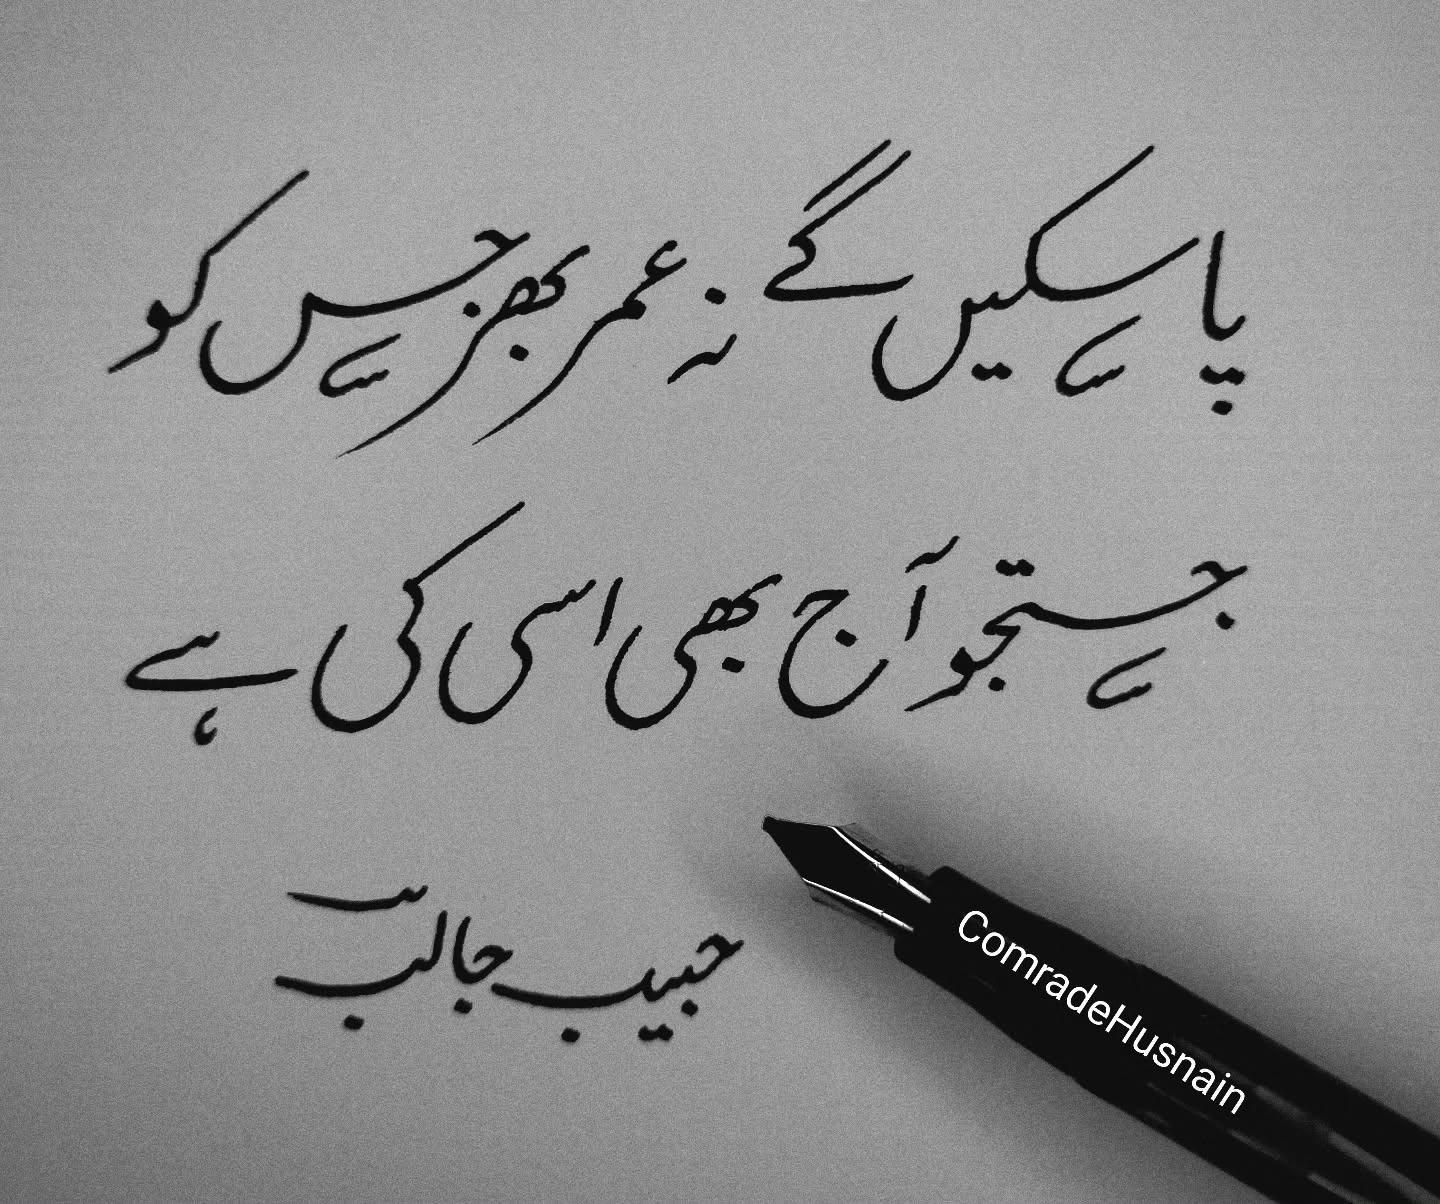 پا سکیں گے نہ عمر بھر جس کو
جستجو آج بھی اسی کی ہے
حبیب جالب
ComradeHusnain